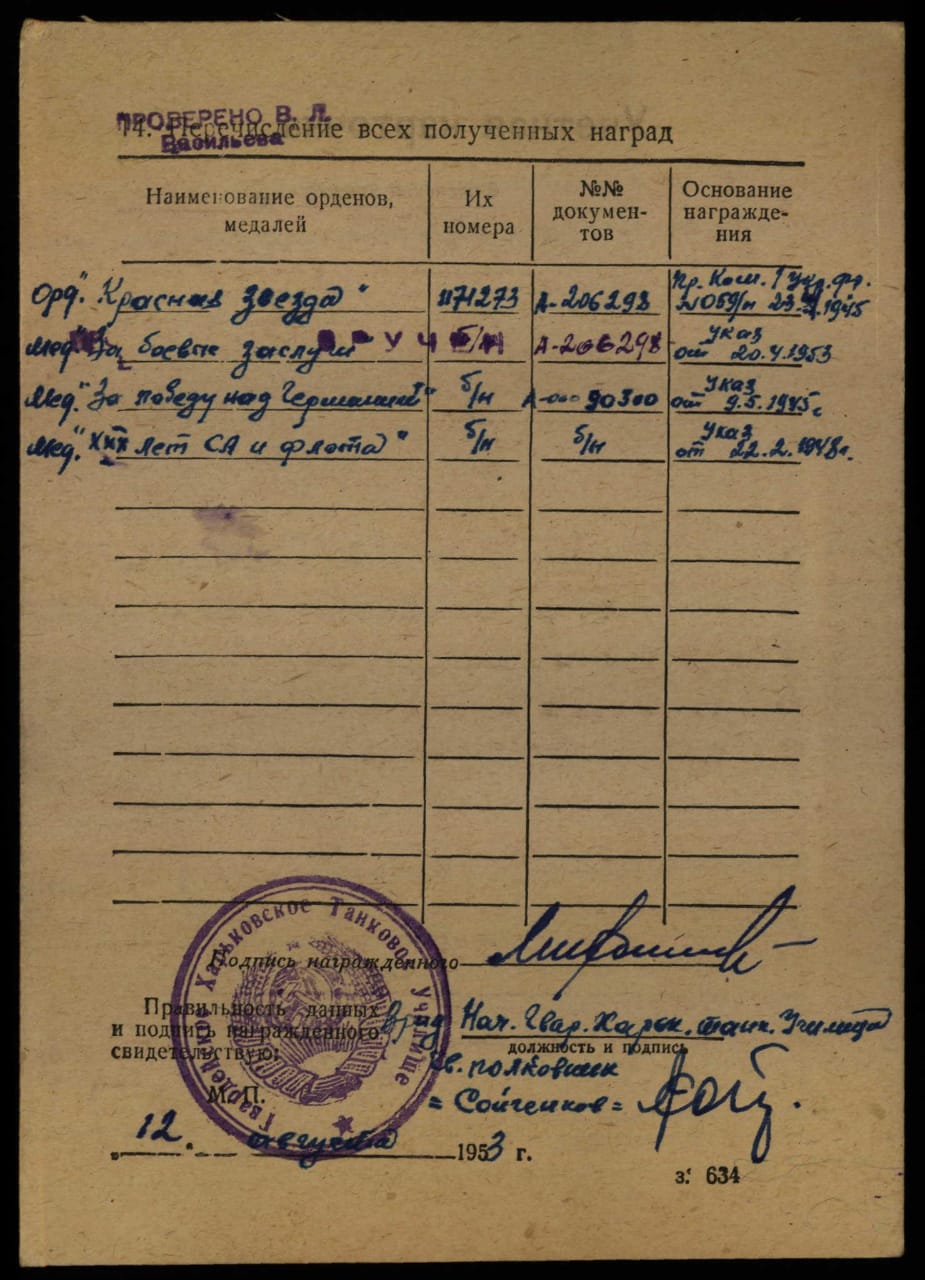 ПРОВЕРЕНО В. Л.
Васильева
14. Перечисление всех полученных наград
Наименование орденов, медалей
Их номера
№№ докумен-тов
Основание награжде-ния
Орд. "Красная Звезда" 1171273 А-206298 Пр. Ком. 1 Укр. фр. N059/н 23.4.1945
Мед. "За боевые заслуги" б/н А-206298 Указ от 20.4.1953
ВРУЧЕН
Мед. "За победу над Германией" б/н А-000 90300 Указ от 9.5.1945г
Мед. "XXX лет СА и флота" б/н б/н Указ от 22.2.1948г.
Подпись награжденного
Правильность данных
и подпись награжденного
свидетельствую:
Врид Нач. Гвар. Харьк. танк. Училища
должность и подпись
Гв. полковник
М. П.
"12" августа 1953 г.
з. 634
Гвардейское Харьковское Танковое Училище